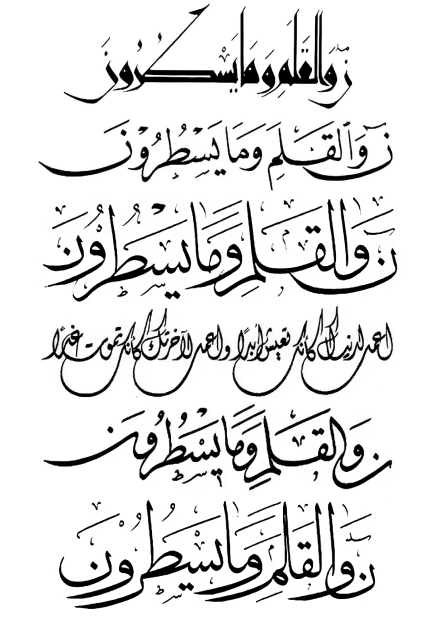 ن والقلم وما يسطرون
ن والقلم وما يسطرون
ن والقلم وما يسطرون
اعمل لدنياك كأنك تعيش أبدا واعمل لآخرتك كأنك تموت غدا
ن والقلم وما يسطرون
ن والقلم وما يسطرون